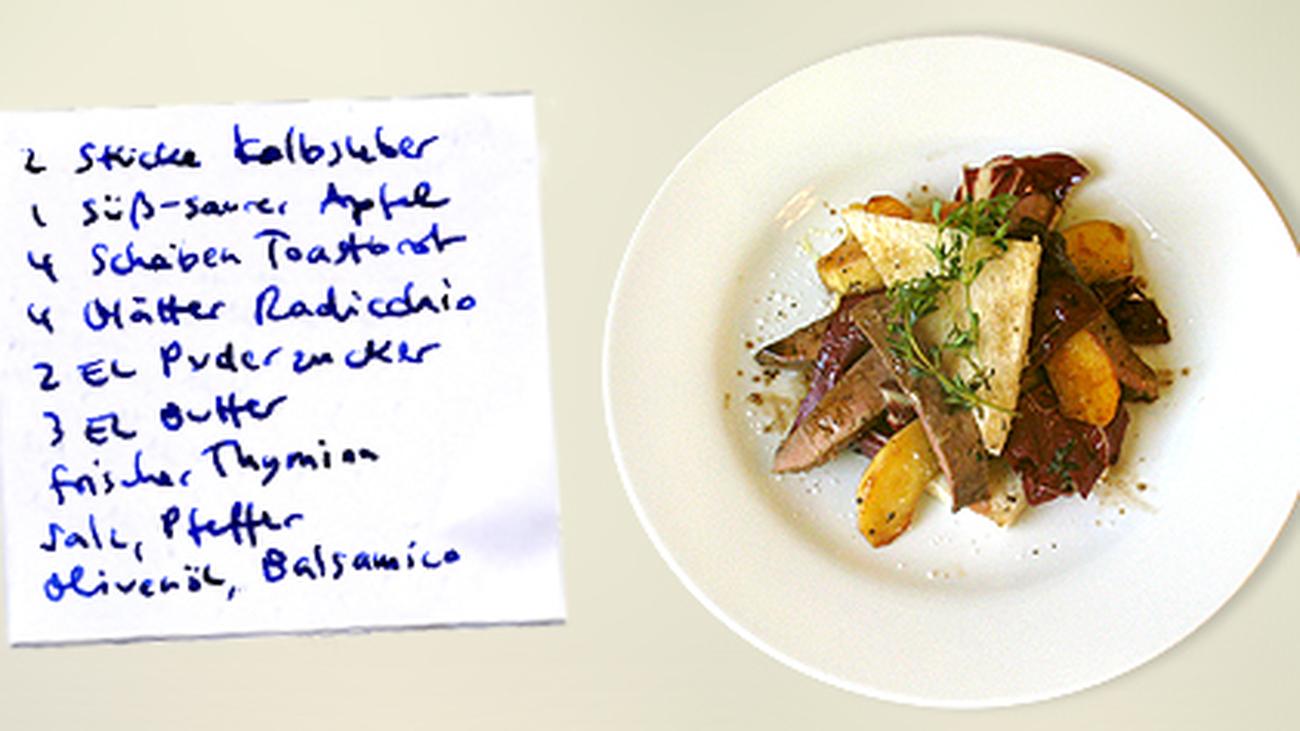 2 Stücke Kalbsleber
1 süß-saurer Apfel
4 Scheiben Toastbrot
4 Blätter Radicchio
2 EL Puderzucker
3 EL Butter
frischer Thymian
Salz, Pfeffer
Olivenöl, Balsamico